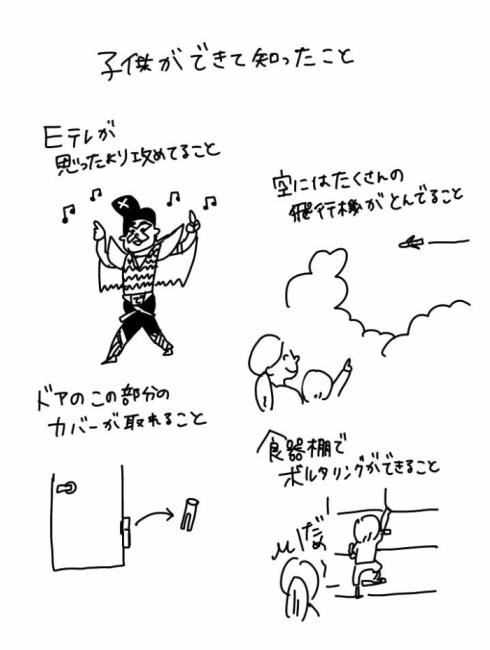 子供ができて知ったこと
Eテレが
思ったより攻めてること
空にはたくさんの
飛行機がとんでること
ドアのこの部分の
カバーが取れること
食器棚で
ボルダリングができること
だめ
〜!